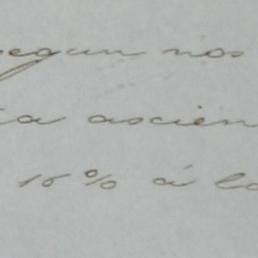 segun nos
ia ascien
16% á la